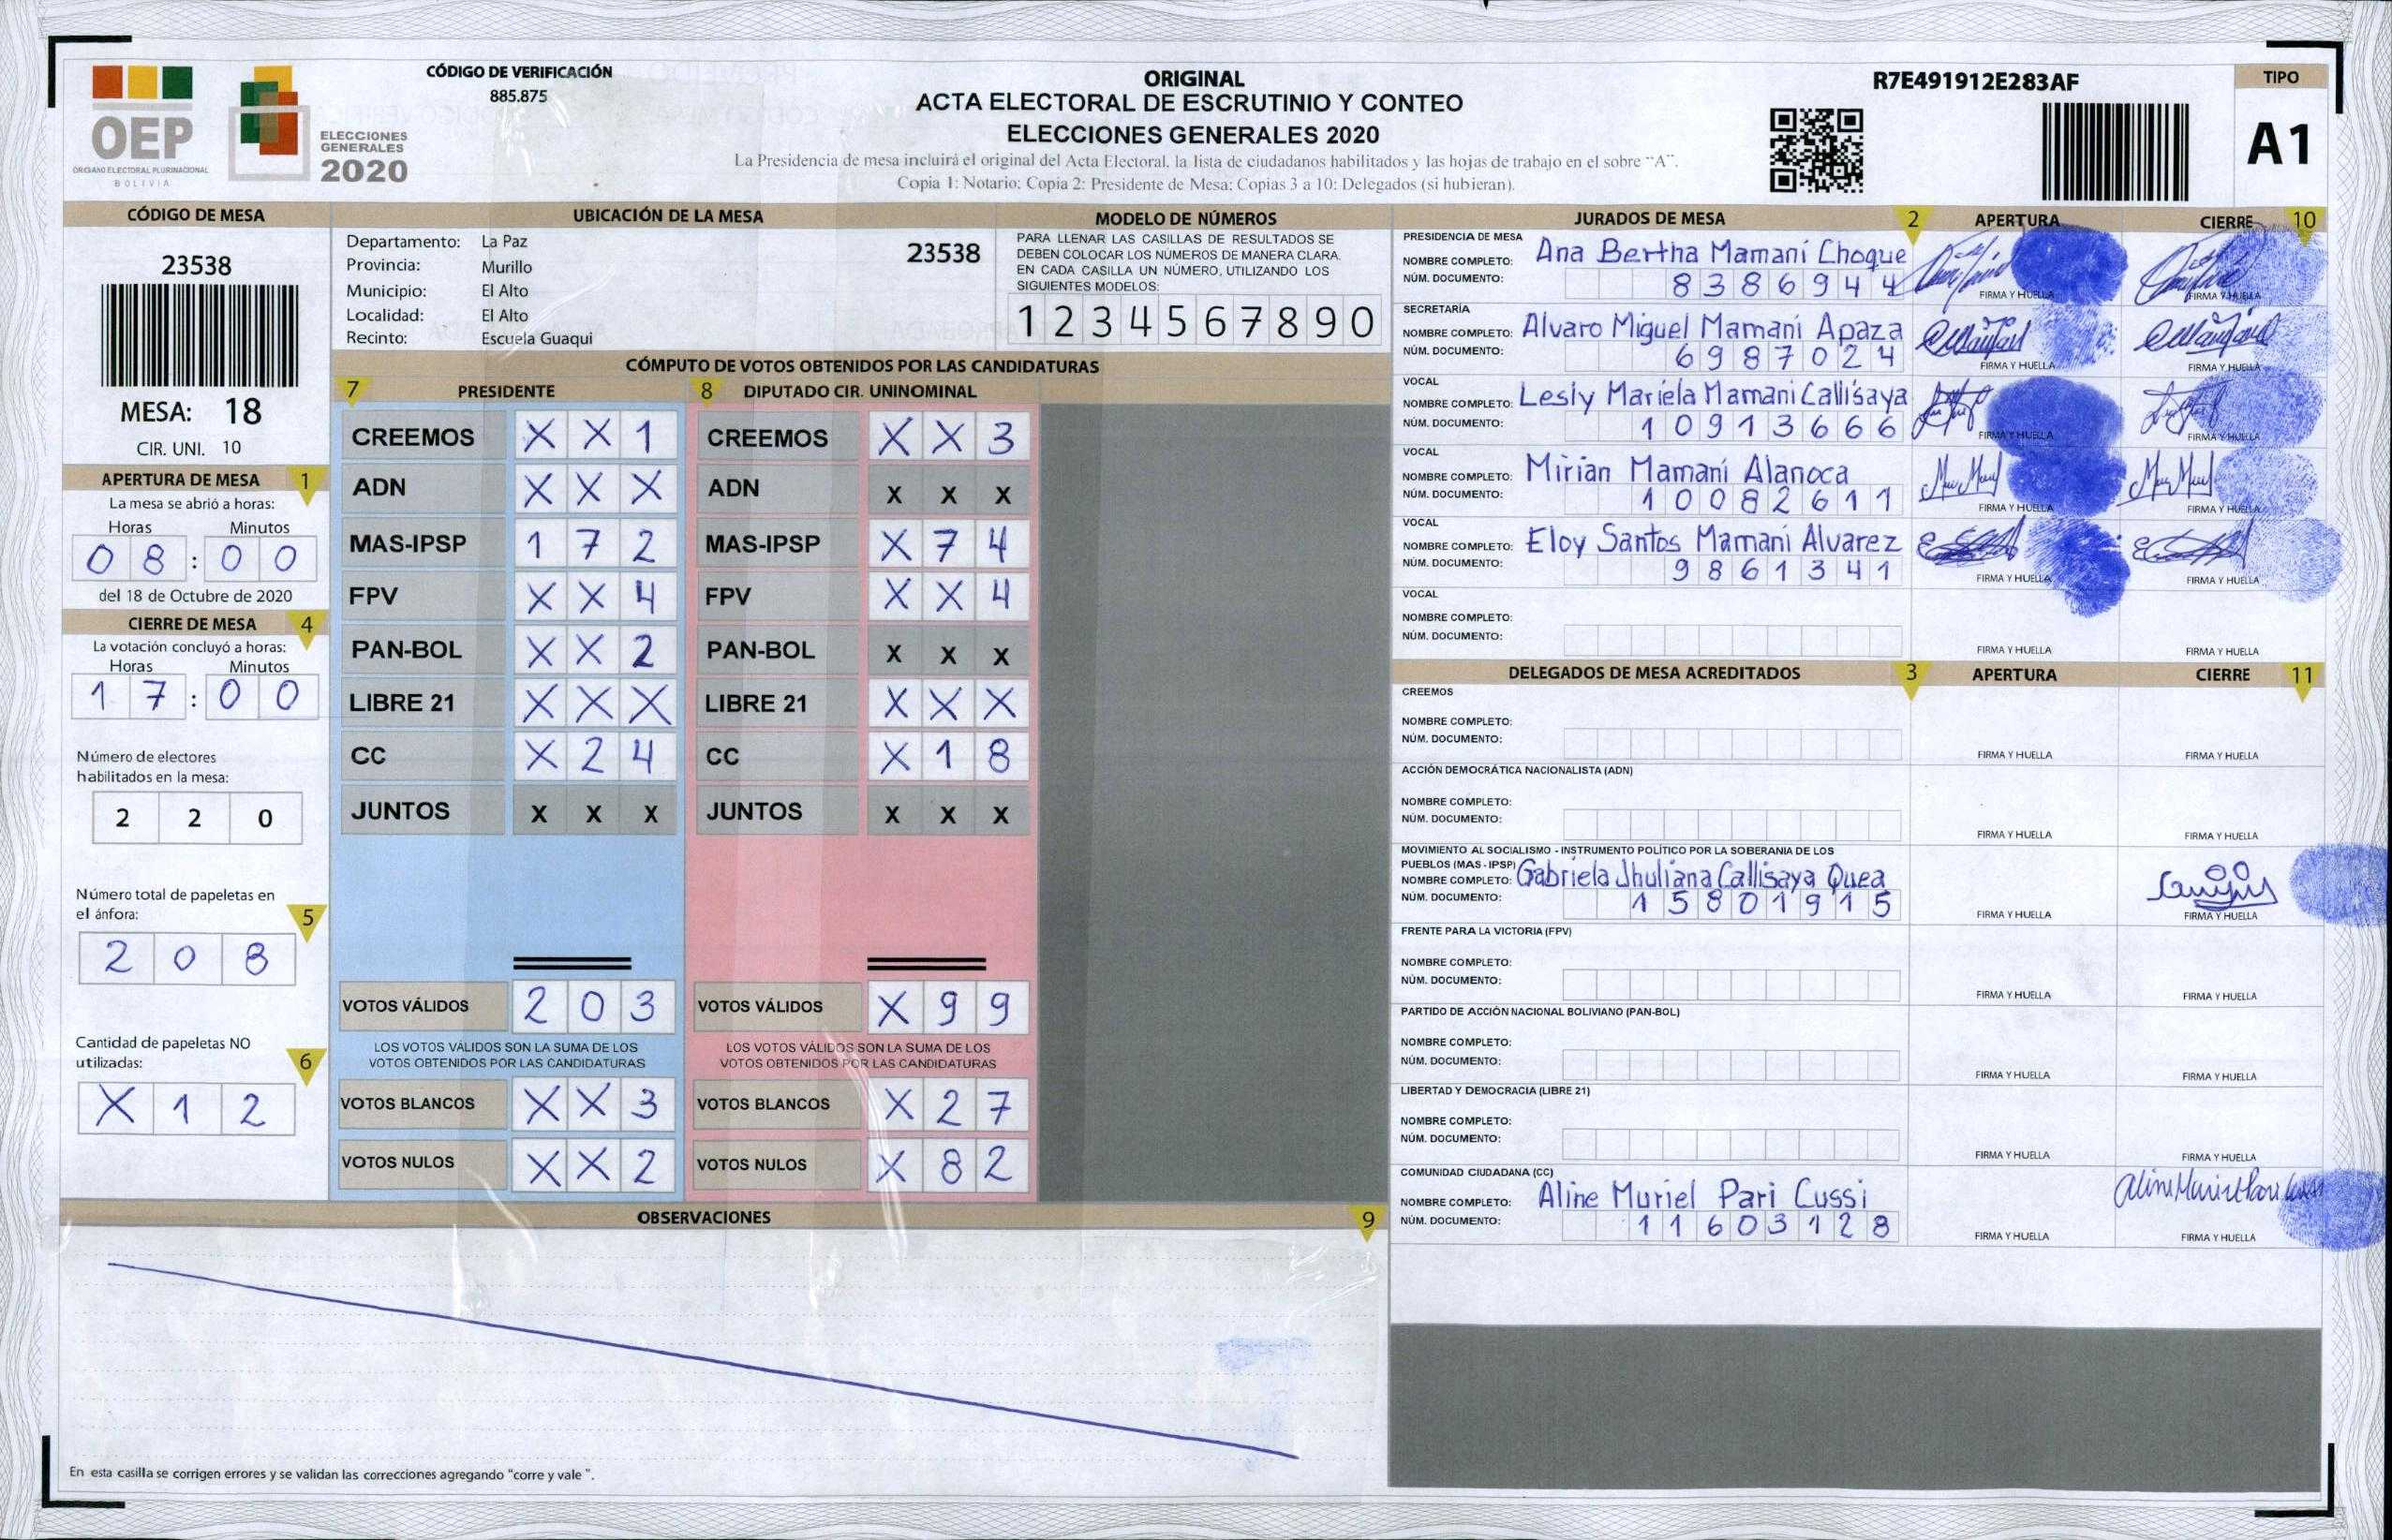 OEP
ORGANO ELECTORAL PLURINACIONAL
BOLIVIA
ELECCIONES
GENERALES
2020
CÓDIGO DE VERIFICACIÓN
885.875
ORIGINAL
ACTA ELECTORAL DE ESCRUTINIO Y CONTEO
ELECCIONES GENERALES 2020
La Presidencia de mesa incluirá el original del Acta Electoral, la lista de ciudadanos habilitados y las hojas de trabajo en el sobre "A".
Copia 1: Notario; Copia 2: Presidente de Mesa; Copias 3 a 10: Delegados (si hubieran).
R7E491912E283AF
TIPO
A1
CÓDIGO DE MESA
23538
MESA: 18
CIR. UNI. 10
APERTURA DE MESA 1
La mesa se abrió a horas:
Horas Minutos
0 8 : 0 0
del 18 de Octubre de 2020
CIERRE DE MESA 4
La votación concluyó a horas:
Horas Minutos
1 7 : 0 0
Número de electores
habilitados en la mesa:
2 2 0
Número total de papeletas en
el ánfora: 5
2 0 8
Cantidad de papeletas NO
utilizadas: 6
X 1 2
UBICACIÓN DE LA MESA
Departamento: La Paz 23538
Provincia: Murillo
Municipio: El Alto
Localidad: El Alto
Recinto: Escuela Guaqui
MODELO DE NÚMEROS
PARA LLENAR LAS CASILLAS DE RESULTADOS SE
DEBEN COLOCAR LOS NÚMEROS DE MANERA CLARA.
EN CADA CASILLA UN NÚMERO, UTILIZANDO LOS
SIGUIENTES MODELOS:
1 2 3 4 5 6 7 8 9 0
CÓMPUTO DE VOTOS OBTENIDOS POR LAS CANDIDATURAS
7 PRESIDENTE 8 DIPUTADO CIR. UNINOMINAL
CREEMOS X X 1 CREEMOS X X 3
ADN X X X ADN X X X
MAS-IPSP 1 7 2 MAS-IPSP X 7 4
FPV X X 4 FPV X X 4
PAN-BOL X X 2 PAN-BOL X X X
LIBRE 21 X X X LIBRE 21 X X X
CC X 2 4 CC X 1 8
JUNTOS X X X JUNTOS X X X
VOTOS VÁLIDOS 2 0 3 VOTOS VÁLIDOS X 9 9
LOS VOTOS VÁLIDOS SON LA SUMA DE LOS LOS VOTOS VÁLIDOS SON LA SUMA DE LOS
VOTOS OBTENIDOS POR LAS CANDIDATURAS VOTOS OBTENIDOS POR LAS CANDIDATURAS
VOTOS BLANCOS X X 3 VOTOS BLANCOS X 2 7
VOTOS NULOS X X 2 VOTOS NULOS X 8 2
OBSERVACIONES 9
En esta casilla se corrigen errores y se validan las correcciones agregando "corre y vale ".
JURADOS DE MESA 2 APERTURA CIERRE 10
PRESIDENCIA DE MESA
NOMBRE COMPLETO: Ana Bertha Mamani Choque
NÚM. DOCUMENTO: 8 3 8 6 9 4 4 FIRMA Y HUELLA FIRMA Y HUELLA
SECRETARÍA
NOMBRE COMPLETO: Alvaro Miguel Mamani Apaza
NÚM. DOCUMENTO: 6 9 8 7 0 2 4 FIRMA Y HUELLA FIRMA Y HUELLA
VOCAL
NOMBRE COMPLETO: Lesly Mariela Mamani Callisaya
NÚM. DOCUMENTO: 1 0 9 1 3 6 6 6 FIRMA Y HUELLA FIRMA Y HUELLA
VOCAL
NOMBRE COMPLETO: Mirian Mamani Alanoca
NÚM. DOCUMENTO: 1 0 0 8 2 6 1 1 FIRMA Y HUELLA FIRMA Y HUELLA
VOCAL
NOMBRE COMPLETO: Eloy Santos Mamani Alvarez
NÚM. DOCUMENTO: 9 8 6 1 3 4 1 FIRMA Y HUELLA FIRMA Y HUELLA
VOCAL
NOMBRE COMPLETO:
NÚM. DOCUMENTO: FIRMA Y HUELLA FIRMA Y HUELLA
DELEGADOS DE MESA ACREDITADOS 3 APERTURA CIERRE 11
CREEMOS
NOMBRE COMPLETO:
NÚM. DOCUMENTO: FIRMA Y HUELLA FIRMA Y HUELLA
ACCIÓN DEMOCRÁTICA NACIONALISTA (ADN)
NOMBRE COMPLETO:
NÚM. DOCUMENTO: FIRMA Y HUELLA FIRMA Y HUELLA
MOVIMIENTO AL SOCIALISMO - INSTRUMENTO POLÍTICO POR LA SOBERANIA DE LOS
PUEBLOS (MAS - IPSP)
NOMBRE COMPLETO: Gabriela Jhuliana Callisaya Quea
NÚM. DOCUMENTO: 1 5 8 0 1 9 1 5 FIRMA Y HUELLA FIRMA Y HUELLA
FRENTE PARA LA VICTORIA (FPV)
NOMBRE COMPLETO:
NÚM. DOCUMENTO: FIRMA Y HUELLA FIRMA Y HUELLA
PARTIDO DE ACCIÓN NACIONAL BOLIVIANO (PAN-BOL)
NOMBRE COMPLETO:
NÚM. DOCUMENTO: FIRMA Y HUELLA FIRMA Y HUELLA
LIBERTAD Y DEMOCRACIA (LIBRE 21)
NOMBRE COMPLETO:
NÚM. DOCUMENTO: FIRMA Y HUELLA FIRMA Y HUELLA
COMUNIDAD CIUDADANA (CC)
NOMBRE COMPLETO: Aline Muriel Pari Cussi
NÚM. DOCUMENTO: 1 1 6 0 3 1 2 8 FIRMA Y HUELLA FIRMA Y HUELLA